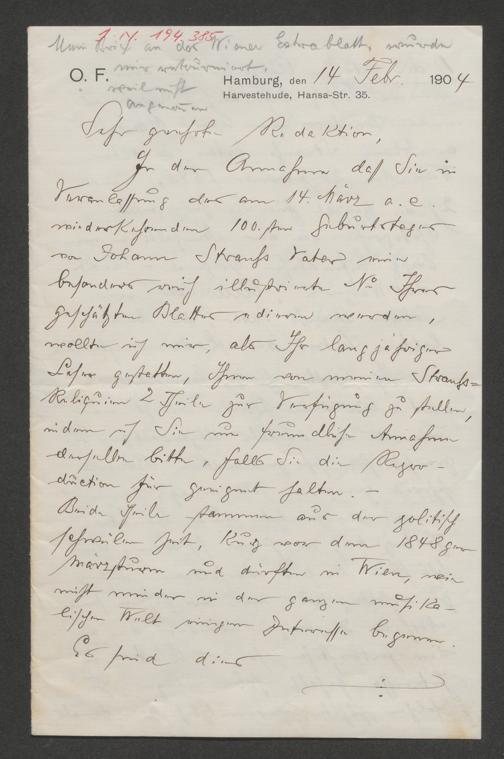 1. IV. 194.385
Mein Brief an das Wiener Extrablatt, wurde
mir retourniert,
weil nicht
angenommen
O. F.
Hamburg, den 14 Febr. 1904
Harvestehude, Hansa-Str. 35.
Sehr geehrte Redaktion,
In der Annahme daß Sie in
Veranlassung des am 14. März a. c.
wiederkehrenden 100.sten Geburtstages
von Johann Strauss Vater eine
besonders reich illustrierte No Ihres
geschätzten Blattes edieren werden,
wollte ich mir, als Ihr langjähriger
Leser gestatten, Ihnen von meinen Strauss=
Reliquien 2 Theile zur Verfügung zu stellen,
indem ich Sie um freundliche Annahme
derselben bitte, falls Sie die Repro-
duction für geeignet halten. –
Beide Theile stammen aus der politisch
schwülen Zeit, kurz vor dem 1848ger
Märzsturm und dürften in Wien, wie
nicht minder in der ganzen musika-
lischen Welt einigem Interesse begegnen.
Es sind dies